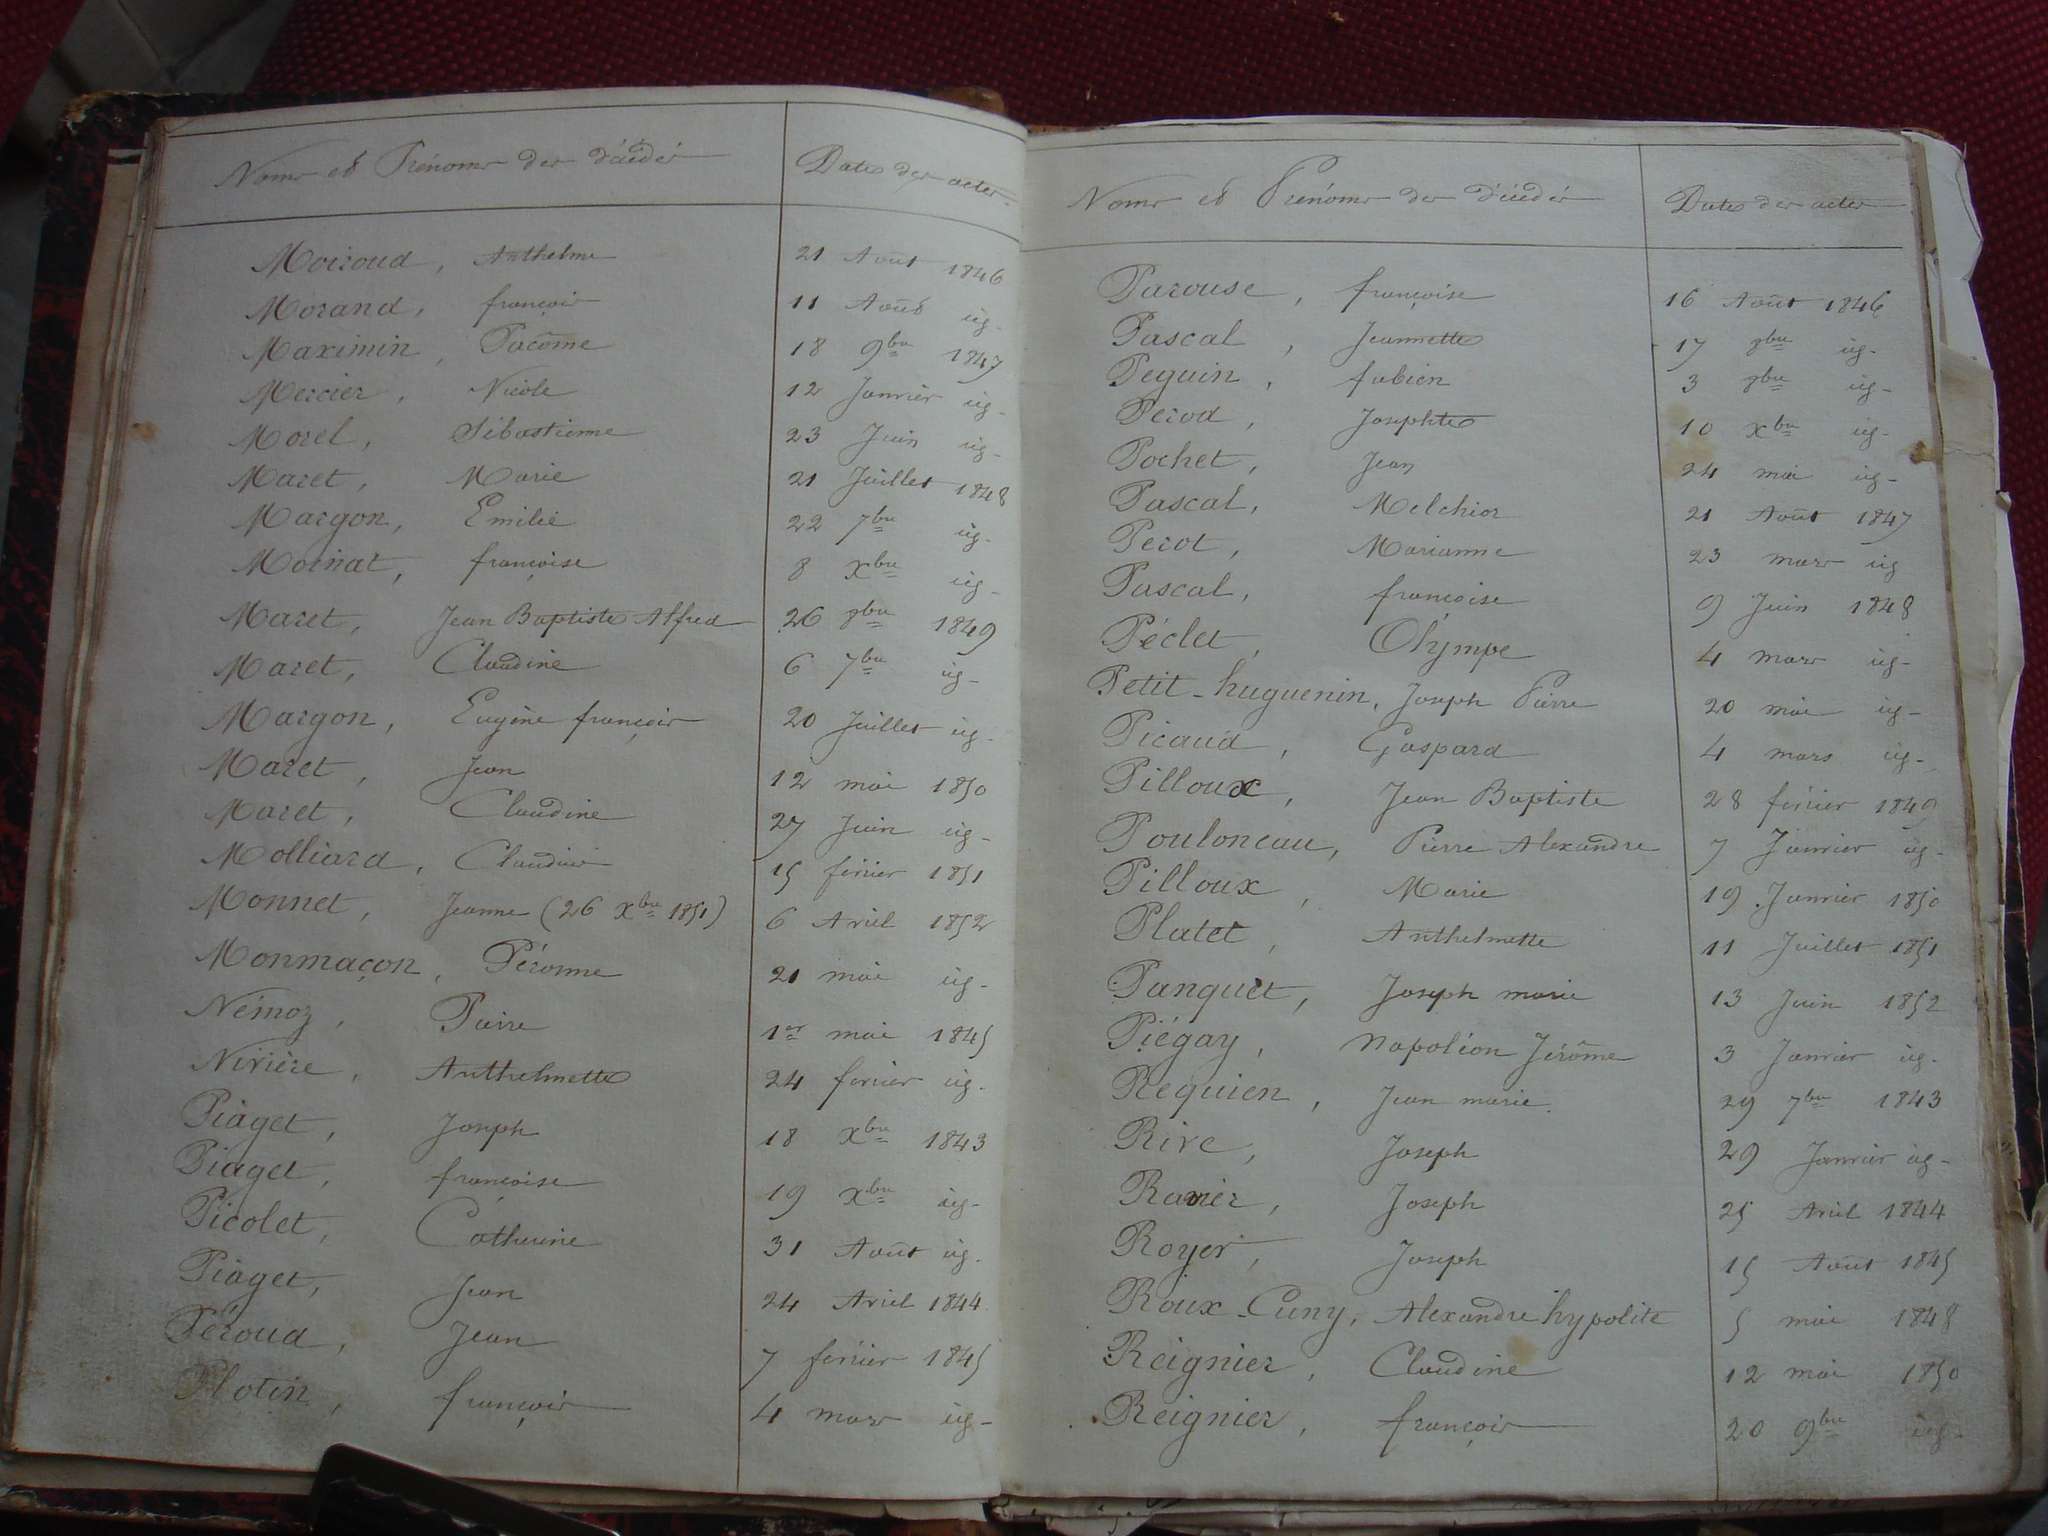 Noms et Prénoms des décédés Dates des actes
Moiroud, Anthelme 21 Août 1846
Morand, françois 11 Août id.
Maximin, Pacôme 18 9bre 1847
Mercier, Nicole 12 Janvier id.
Morel, Sébastienne 23 Juin id.
Maret, Marie 21 Juillet 1848
Margon, Emilie 22 7bre id.
Mornat, françoise 8 Xbre id.
Maret, Jean Baptiste Alfred 26 8bre 1849
Maret, Claudine 6 7bre id.
Margon, Eugène françois 20 Juillet id.
Maret, Jean 12 mai 1850
Maret, Claudine 27 Juin id.
Molliard, Claudine 15 février 1851
Monnet, Jeanne (26 Xbre 1851) 6 Avril 1852
Monmaçon, Péronne 21 mai id.
Némoz, Pierre 1er mai 1845
Nivière, Anthelmette 24 février id.
Piaget, Joseph 18 Xbre 1843
Piaget, françoise 19 Xbre id.
Picolet, Catherine 31 Août id.
Piaget, Jean 24 Avril 1844
Péroud, Jean 7 février 1845
Plotin, françois 4 mars id.
Noms et Prénoms des décédés Dates des actes
Parouse, françoise 16 Août 1846
Pascal, Jeannette 17 8bre id.
Peguin, fabien 3 8bre id.
Perod, Josephte 10 Xbre id.
Pochet, Jean 24 mai id.
Pascal, Melchior 21 Août 1847
Perot, Marianne 23 mars id
Pascal, françoise 9 Juin 1848
Péclet, Olympe 4 mars id.
Petit-huguenin, Joseph Pierre 20 mai id.
Picaud, Gaspard 4 mars id.
Pilloux, Jean Baptiste 28 février 1849
Pouloneau, Pierre Alexandre 7 Janvier id.
Pilloux, Marie 19 Janvier 1850
Platet, Anthelmette 11 Juillet 1851
Panquet, Joseph marie 13 Juin 1852
Piégay, Napoléon Jérôme 3 Janvier id.
Requien, Jean marie. 29 7bre 1843
Rive, Joseph 29 Janvier id.
Ravier, Joseph 25 Avril 1844
Royer, Joseph 15 Août 1845
Roux-Cuny, Alexandre hypolite 5 mai 1848
Reignier, Claudine 12 mai 1850
Reignier, françois 20 9bre id.